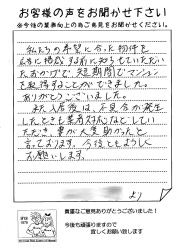 お客様の声をお聞かせ下さい
※今後の業務向上の為ご意見をお聞かせください。
私たちの希望に合った物件を
し事に掲載する前に知らせていただい
たおかげで、短期間でマンション
を取得することができました。
ありがとうございました。
また入居後は、不具合が発生
したときも業者対応などしてい
ただき、妻が大変助かったと
言っております。今後ともよろしく
お願いします。
より
貴重なご意見ありがとうございました！
今後も頑張りますので
宜しくお願い致します